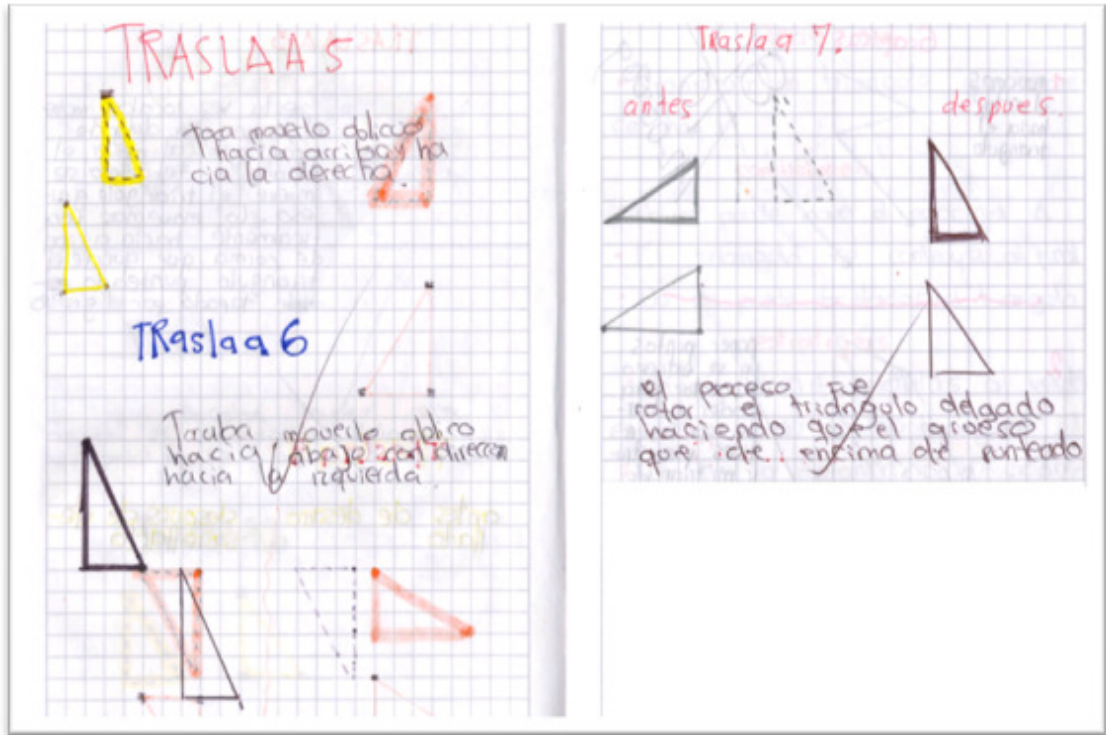 TRASLAA 5
para moverlo oblicuo
hacia arriba y ha
cia la derecha.
TRaslaa 6
moverlo
hacia abajo con
hacia la izquierda
Traslaa 7.
antes
despues.
el proceso fue
rotar el triángulo delgado
haciendo que el grueso
encima de punteado